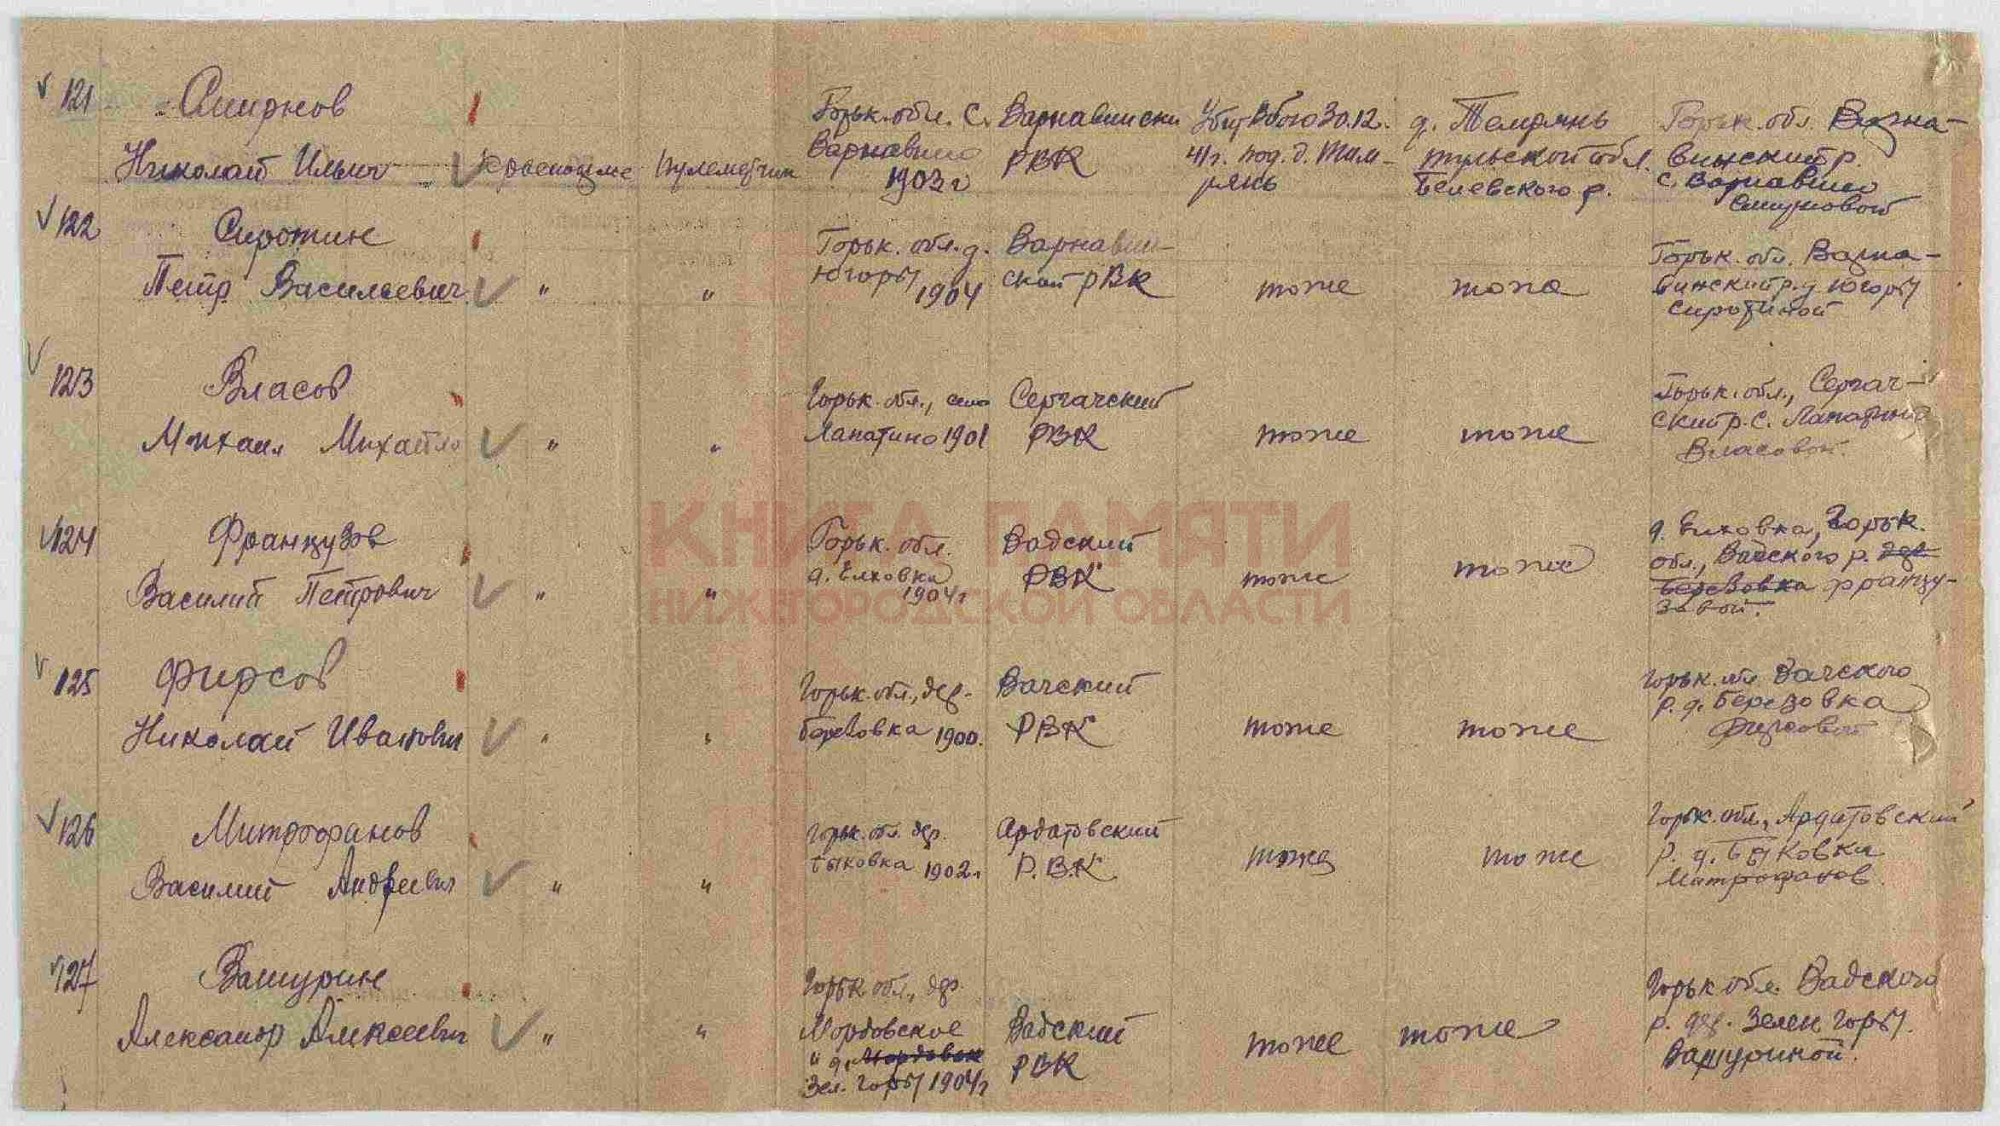 121 Смирнов
Николай Ильич красноарме пулеметчик
Горьк. обл. с.
Варнавино
1903 г
Варнавински
РВК
Убит в бою 30.12.
41 г. под. д. Тем-
рянь
д. Темрянь
тульской обл.
Белевского р.
Горьк. обл. Варна-
винский р.
с. Варнавино
Смирновой
122 Сиротин
Петр Васильевич " "
Горьк. обл. д.
Югоры 1904
Варнавин-
ский РВК
тоже
тоже
Горьк. обл. Варна-
винский р. д. Югоры
Сиротиной
123 Власов
Михаил Михайло " "
Горьк. обл., село
Лапатино 1901
Сергачский
РВК
тоже
тоже
Горьк. обл., Сергач-
ский р. с. Лапатино
Власовой.
КНИГА ПАМЯТИ
НИЖЕГОРОДСКОЙ ОБЛАСТИ
124 Французов
Василий Петрович " "
Горьк. обл.
д. Елховка
1904 г
Вадский
РВК
тоже
тоже
д. Елховка, Горьк.
обл., Вадского р. дер
Березовка Францу-
зовой.
125 Фирсов
Николай Иванович " "
Горьк. обл., дер.
Березовка 1900.
Вачский
РВК
тоже
тоже
Горьк. обл. Вачского
р. д. Березовка
Фирсовой
126 Митрофанов
Василий Андреевич " "
Горьк. обл. дер.
Быковка 1902 г
Ардатовский
Р.В.К.
тоже
тоже
Горьк. обл., Ардатовский
р. д. Быковка
Митрофанов.
127 Вашурин
Александр Алексеевич " "
Горьк обл., дер.
Мордовское
" д. Мордовск
Зел. Горы 1904 г
Вадский
РВК
тоже
тоже
Горьк обл. Вадского
р. дер. Зелен Горы.
Вашуриной.